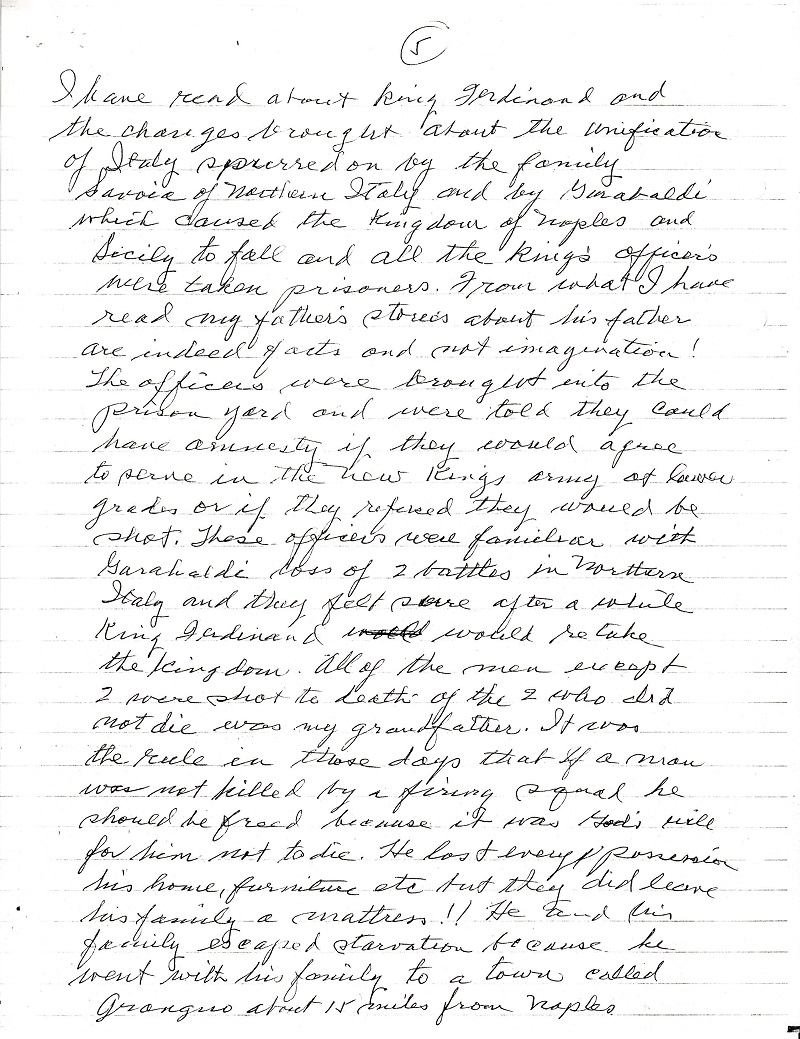 5
I have read about King Ferdinand and
the changes brought about the unification
of Italy spurred on by the family
Savoia of Northern Italy and by Garabaldi
which caused the Kingdom of Naples and
Sicily to fall and all the king's officer's
were taken prisoners. From what I have
read my father's stories about his father
are indeed facts and not imagination!
The officers were brought into the
prison yard and were told they could
have amnesty if they would agree
to serve in the new Kings army at lower
grades or if they refused they would be
shot. These officers were familiar with
Garabaldi loss of 2 battles in Northern
Italy and they felt sure after a while
King Ferdinand would would retake
the kingdom. All of the men except
2 were shot to death of the 2 who did
not die was my grandfather. It was
the rule in those days that if a man
was not killed by a firing squad he
should be freed because it was God's will
for him not to die. He lost every possession
his home, furniture etc but they did leave
his family a mattress!! He and his
family escaped starvation because he
went with his family to a town called
Grangno about 15 miles from Naples